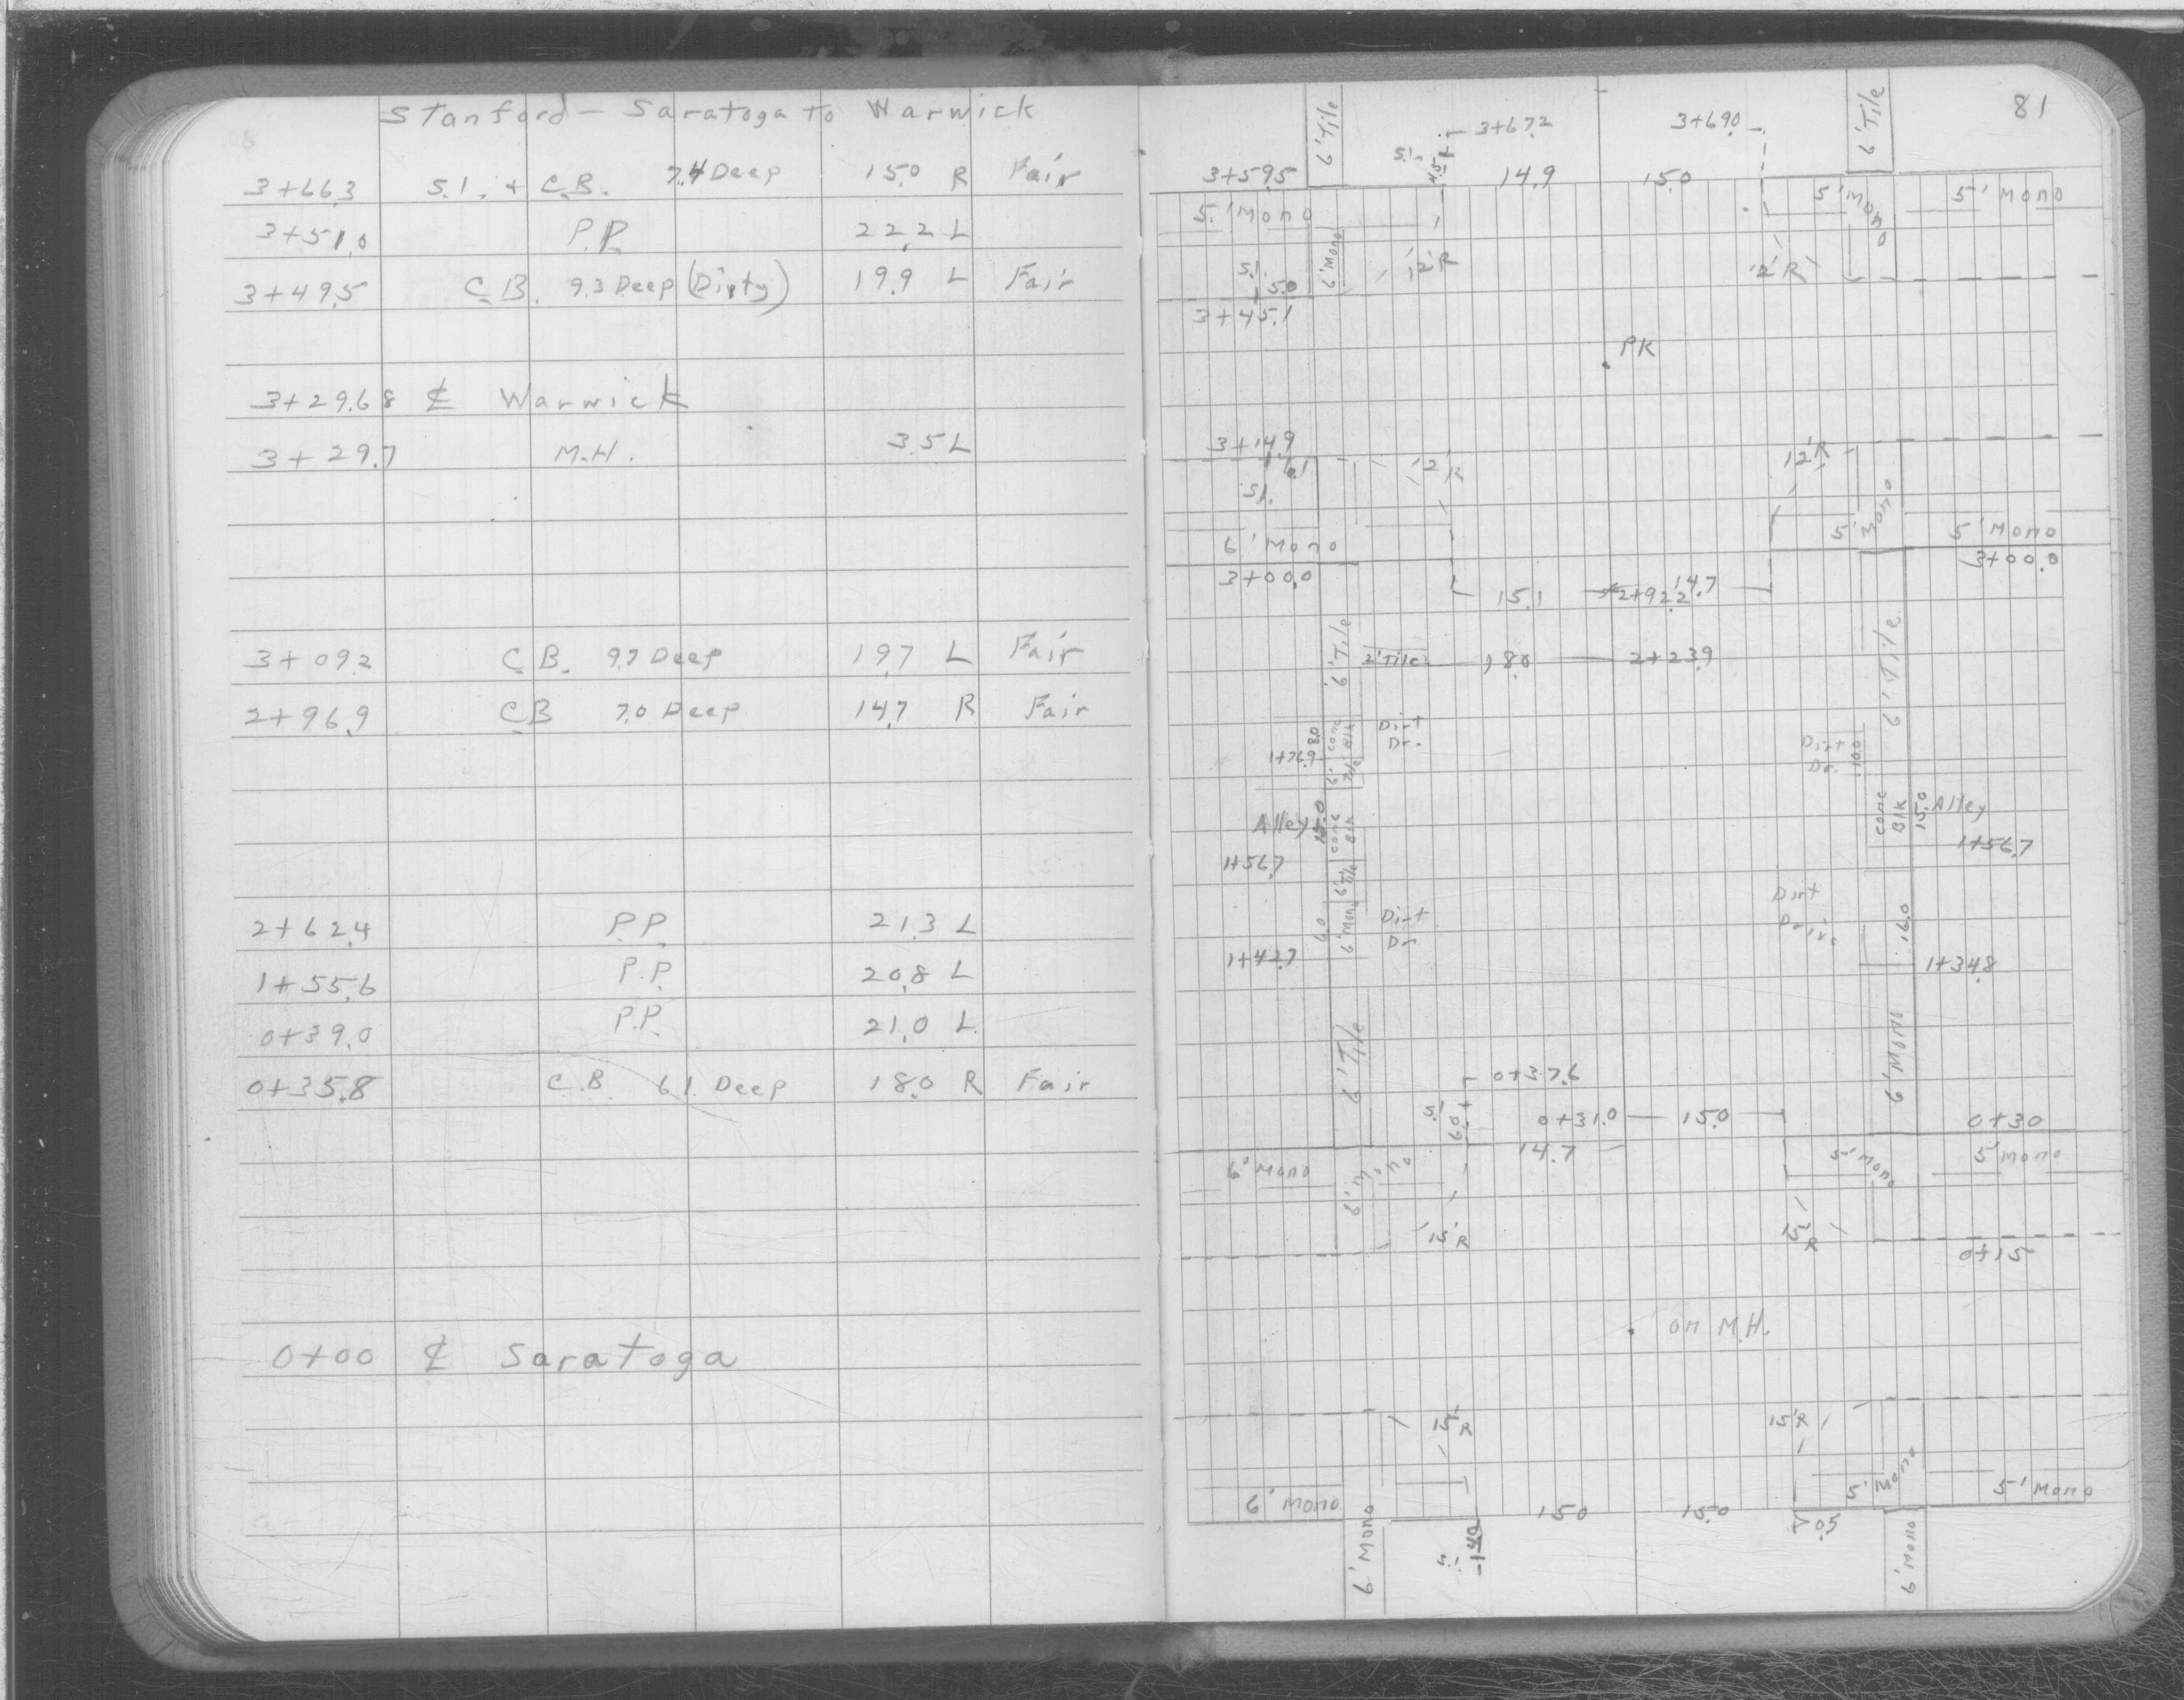 Stanford - Saratoga to Warwick
3+66.3 S.I. + C.B. 7.4 Deep 15.0 R Fair
3+51.0 P.P. 22.2 L
3+49.5 C.B. 9.3 Deep (Dirty) 19.9 L Fair
3+29.68 ℄ Warwick
3+29.7 M.H. 3.5 L
3+09.2 C.B. 9.7 Deep 19.7 L Fair
2+96.9 C.B 7.0 Deep 14.7 R Fair
2+62.4 P.P. 21.3 L
1+55.6 P.P. 20.8 L
0+39.0 P.P. 21.0 L.
0+35.8 C.B. 6.1 Deep 18.0 R Fair
0+00 ℄ Saratoga
81
6' Tile 3+67.2 3+69.0 6' Tile
3+59.5 S.I. 4.5 14.9 15.0
5' Mono 5' Mono 5' Mono
S.I. 5.0 6' Mono 12'R 12'R
3+45.1
PK
3+14.9 12'R 12'R
S.I.
6' Mono 5' Mono 5' Mono
3+00.0 3+00.0
15.1 2+92.2 14.7
6' Tile 2' Tile 18.0 2+23.9 6' Tile
8.0 6' conc Blk Dirt Dr.
1+76.9 Tile Dirt Dr. 10.0
Alley 15.0 conc Blk conc Blk 15.0 Alley
1+56.7 6' Tile 1+56.7
6.0 6' Mono Dirt Dr Dirt Drive 16.0
1+42.7 1+34.8
6' Tile 6' Mono
0+37.6
S.I. 6.0 0+31.0 15.0 0+30
14.7
6' Mono 6' Mono 5' Mono 5' Mono
15'R 15'R
0+15
on M.H.
15'R 15'R
6' Mono 15.0 15.0 5' Mono 5' Mono
6' Mono S.I. 0.5 6' Mono